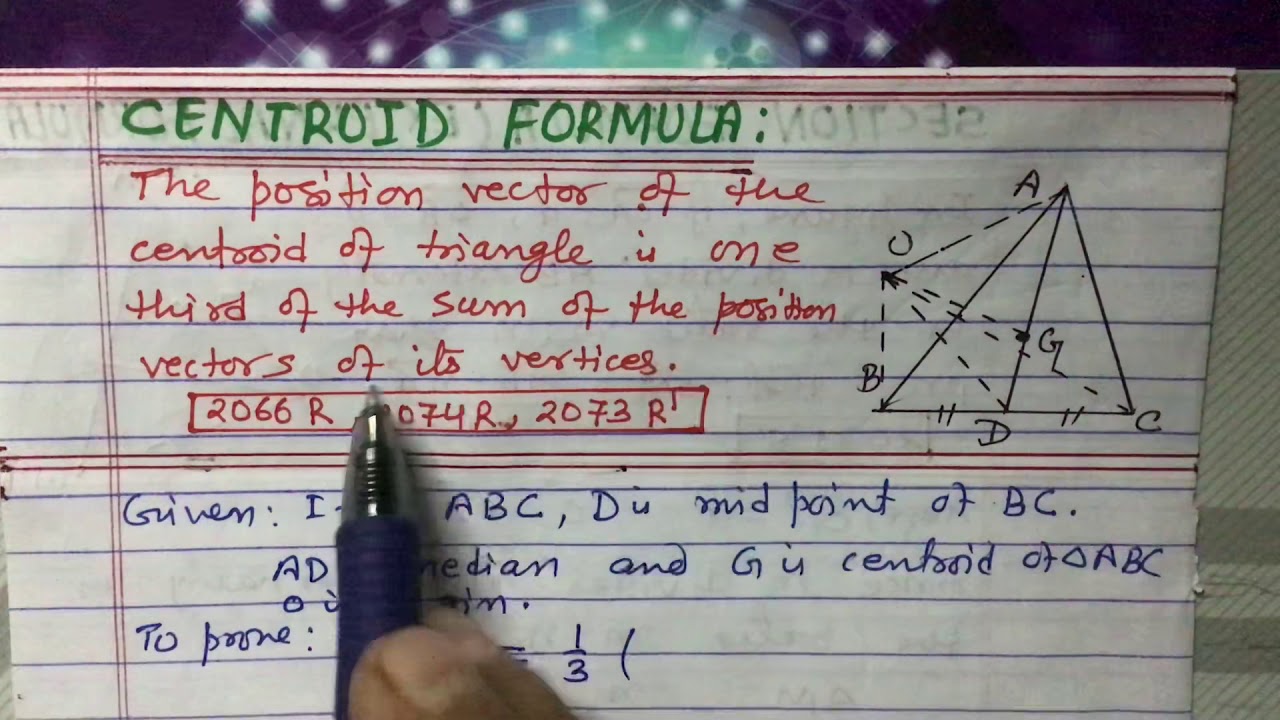 CENTROID FORMULA:
The position vector of the
centroid of triangle is one
third of the sum of the position
vectors of its vertices.
2066 R 2074 R, 2073 R'
A
O
G
B
D
C
Given: ABC, D is mid point of BC.
AD median and G is centroid of △ABC
O
To prove: = 1/3 (